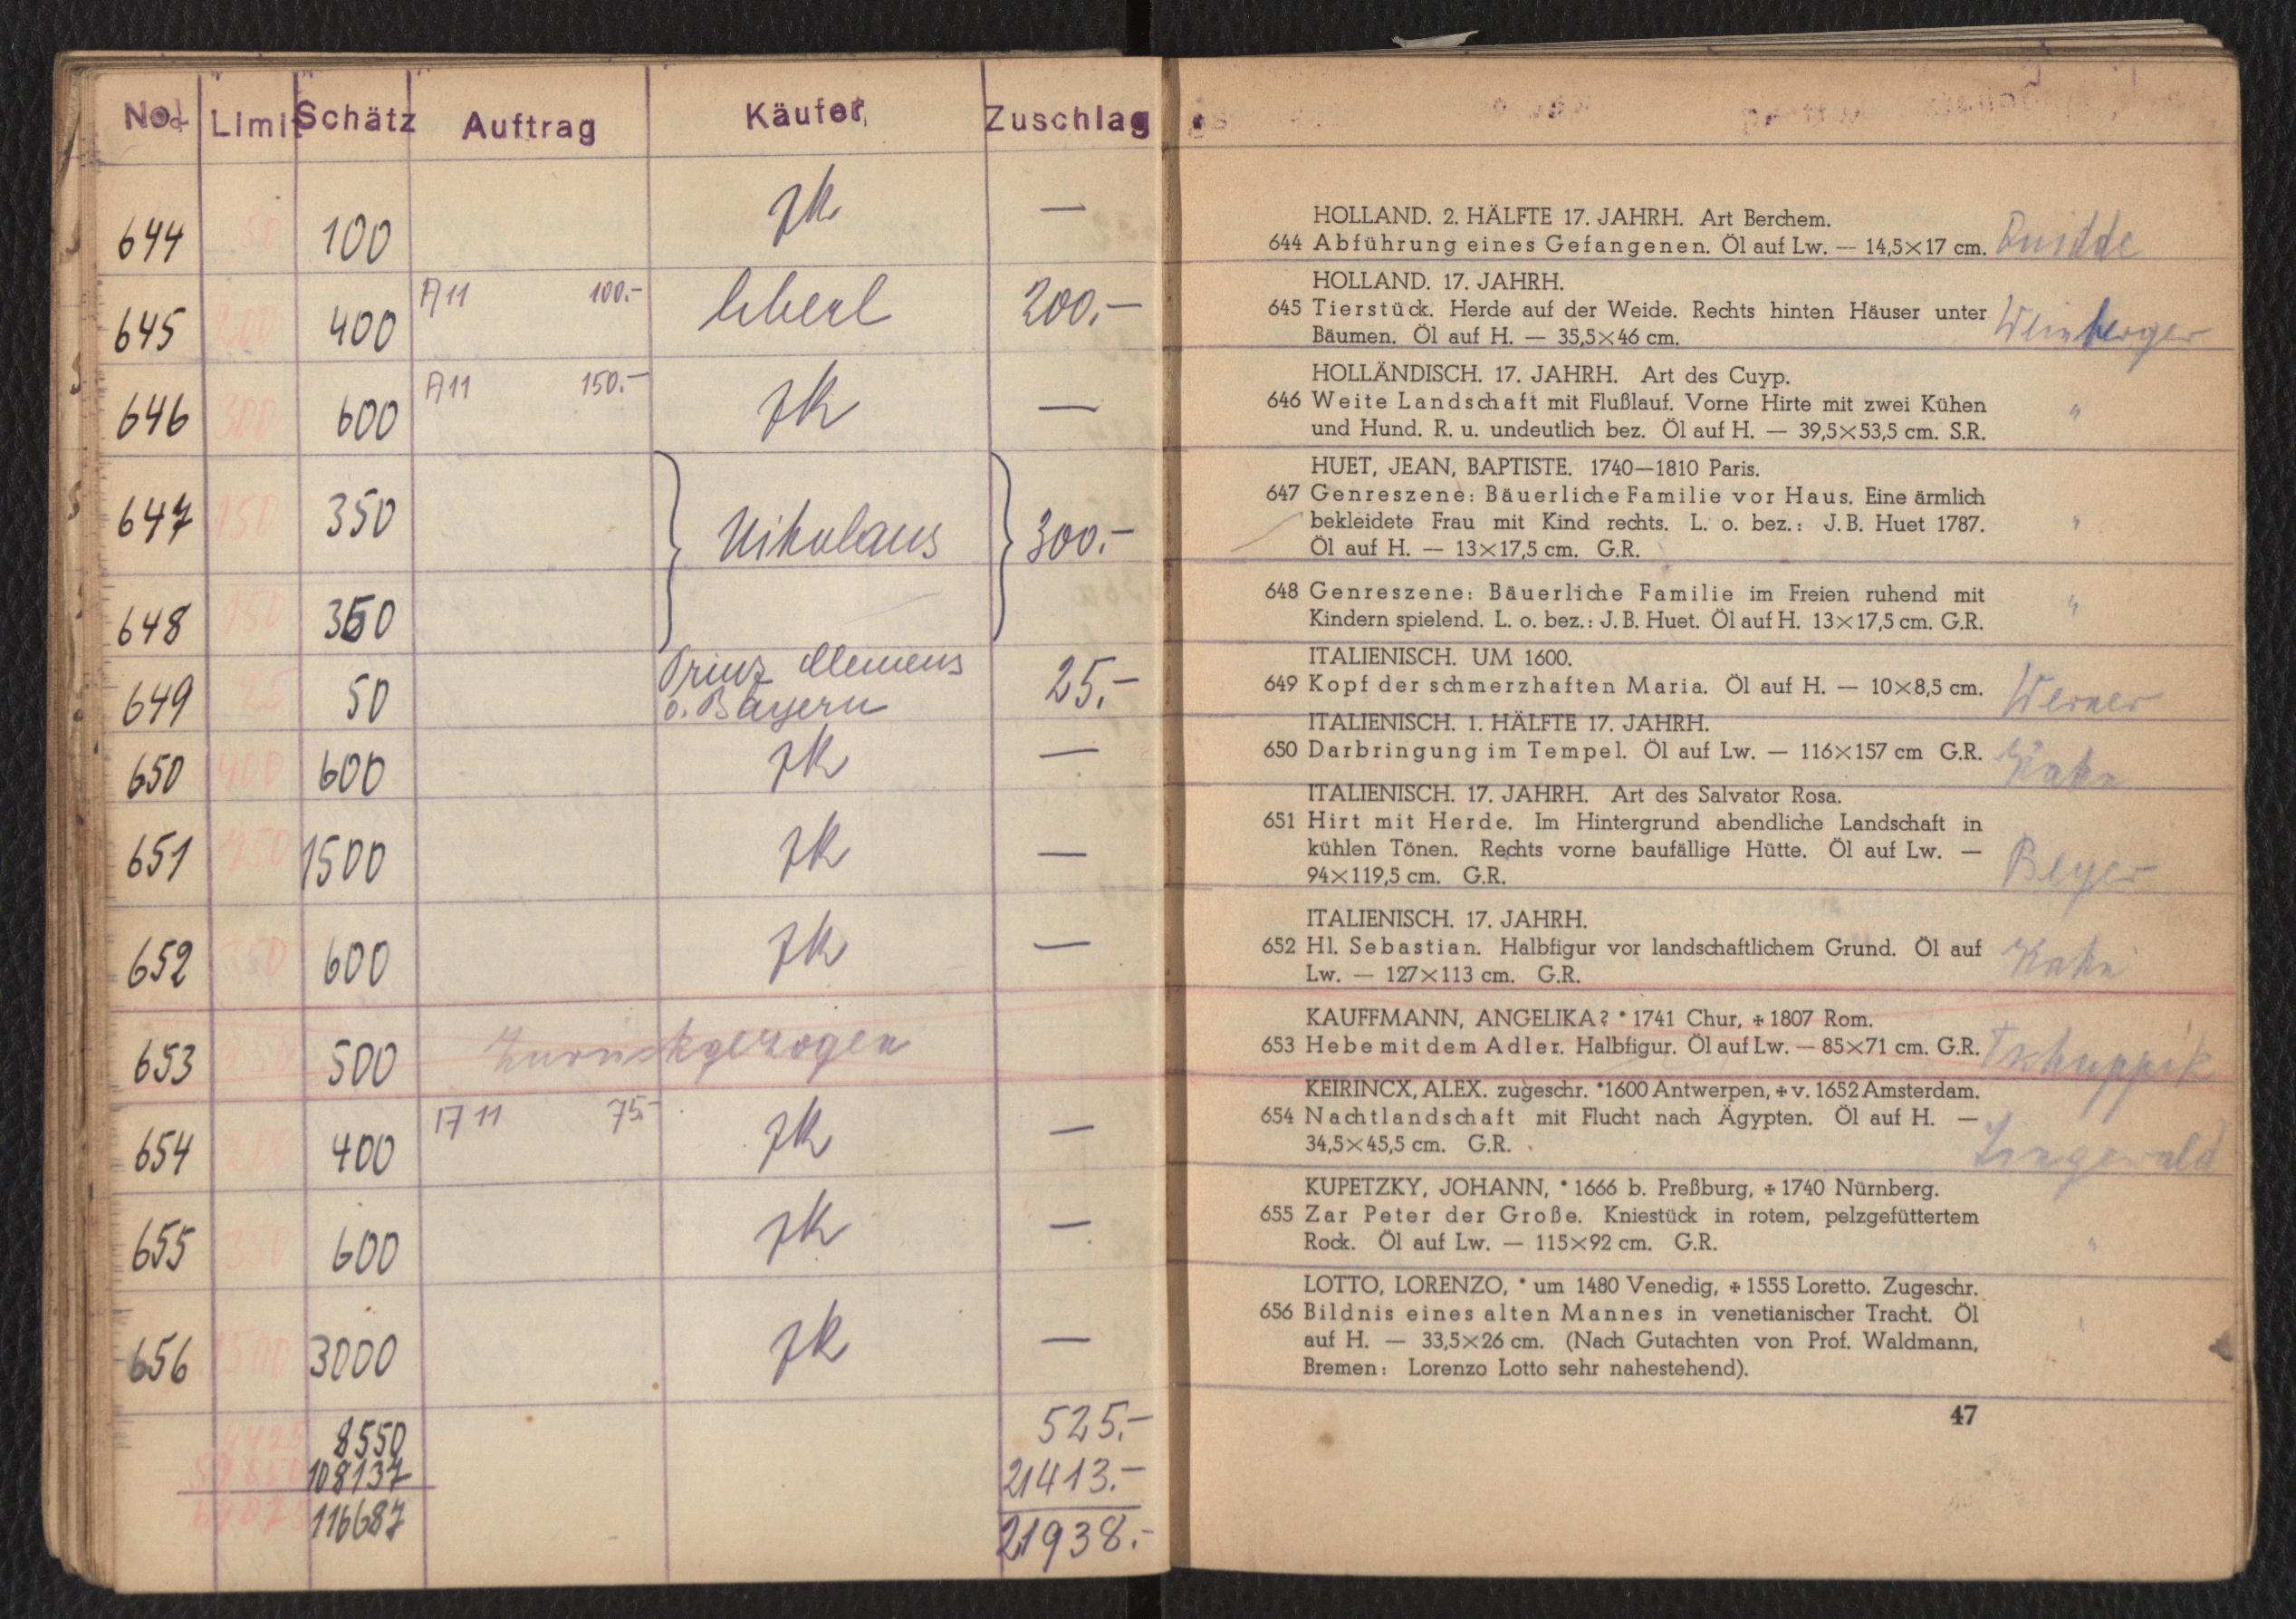 No. Limit Schätz Auftrag Käufer Zuschlag
zk —
644 50 100
645 200 400 A11 100.- Eberl 200.-
646 300 600 A11 150.- zk —
647 150 350
Nikolaus 300.-
648 150 350
649 25 50 Prinz Clemens
v. Bayern 25.-
650 400 600 zk —
651 750 1500 zk —
652 350 600 zk —
653 500 Zurückgezogen
654 200 400 A11 75.- zk —
655 350 600 zk —
656 1500 3000 zk —
4425 8550 525.-
108137 21413.-
116687 21938.-
HOLLAND. 2. HÄLFTE 17. JAHRH. Art Berchem.
644 Abführung eines Gefangenen. Öl auf Lw. — 14,5×17 cm. Quidde
HOLLAND. 17. JAHRH.
645 Tierstück. Herde auf der Weide. Rechts hinten Häuser unter
Bäumen. Öl auf H. — 35,5×46 cm. Weinberger
HOLLÄNDISCH. 17. JAHRH. Art des Cuyp.
646 Weite Landschaft mit Flußlauf. Vorne Hirte mit zwei Kühen "
und Hund. R. u. undeutlich bez. Öl auf H. — 39,5×53,5 cm. S.R.
HUET, JEAN, BAPTISTE. 1740—1810 Paris.
647 Genreszene: Bäuerliche Familie vor Haus. Eine ärmlich
bekleidete Frau mit Kind rechts. L. o. bez.: J.B. Huet 1787. "
Öl auf H. — 13×17,5 cm. G.R.
648 Genreszene: Bäuerliche Familie im Freien ruhend mit "
Kindern spielend. L. o. bez.: J.B. Huet. Öl auf H. 13×17,5 cm. G.R.
ITALIENISCH. UM 1600.
649 Kopf der schmerzhaften Maria. Öl auf H. — 10×8,5 cm. Werner
ITALIENISCH. 1. HÄLFTE 17. JAHRH.
650 Darbringung im Tempel. Öl auf Lw. — 116×157 cm G.R. Kahn
ITALIENISCH. 17. JAHRH. Art des Salvator Rosa.
651 Hirt mit Herde. Im Hintergrund abendliche Landschaft in
kühlen Tönen. Rechts vorne baufällige Hütte. Öl auf Lw. —
94×119,5 cm. G.R. Beyer
ITALIENISCH. 17. JAHRH.
652 Hl. Sebastian. Halbfigur vor landschaftlichem Grund. Öl auf
Lw. — 127×113 cm. G.R. Kahn
KAUFFMANN, ANGELIKA? *1741 Chur, +1807 Rom.
653 Hebe mit dem Adler. Halbfigur. Öl auf Lw. — 85×71 cm. G.R. Tschuppik
KEIRINCX, ALEX. zugeschr. *1600 Antwerpen, + v. 1652 Amsterdam.
654 Nachtlandschaft mit Flucht nach Ägypten. Öl auf H. —
34,5×45,5 cm. G.R.
KUPETZKY, JOHANN, *1666 b. Preßburg, +1740 Nürnberg.
655 Zar Peter der Große. Kniestück in rotem, pelzgefüttertem
Rock. Öl auf Lw. — 115×92 cm. G.R. "
LOTTO, LORENZO, * um 1480 Venedig, +1555 Loretto. Zugeschr.
656 Bildnis eines alten Mannes in venetianischer Tracht. Öl
auf H. — 33,5×26 cm. (Nach Gutachten von Prof. Waldmann,
Bremen: Lorenzo Lotto sehr nahestehend).
47